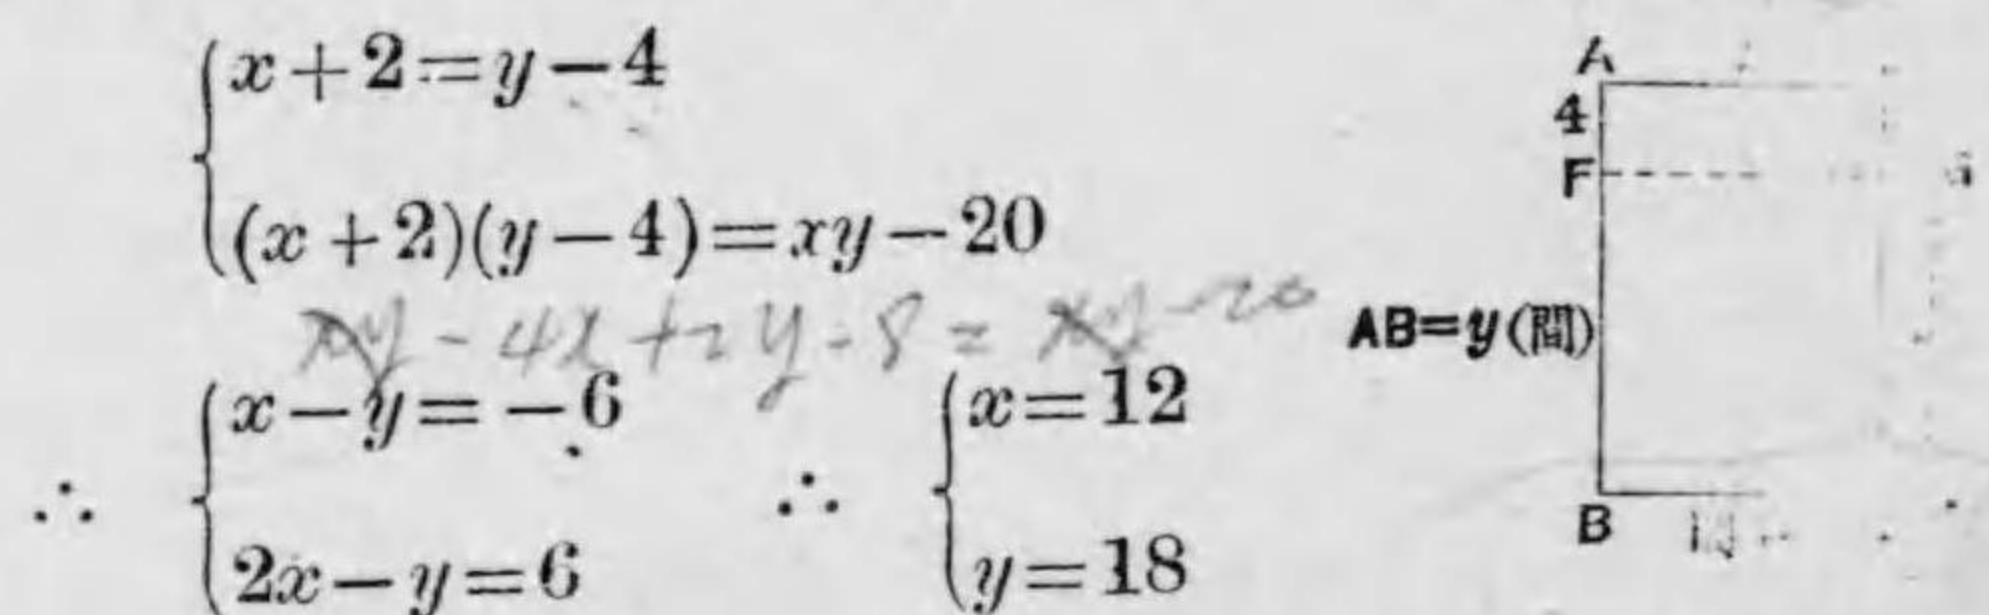 x+2=y-4
(x+2)(y-4)=xy-20
xy-4x+2y-8=xy-20
∴ x-y=-6
2x-y=6
∴ x=12
y=18
A
4
F
AB=y(間)
B